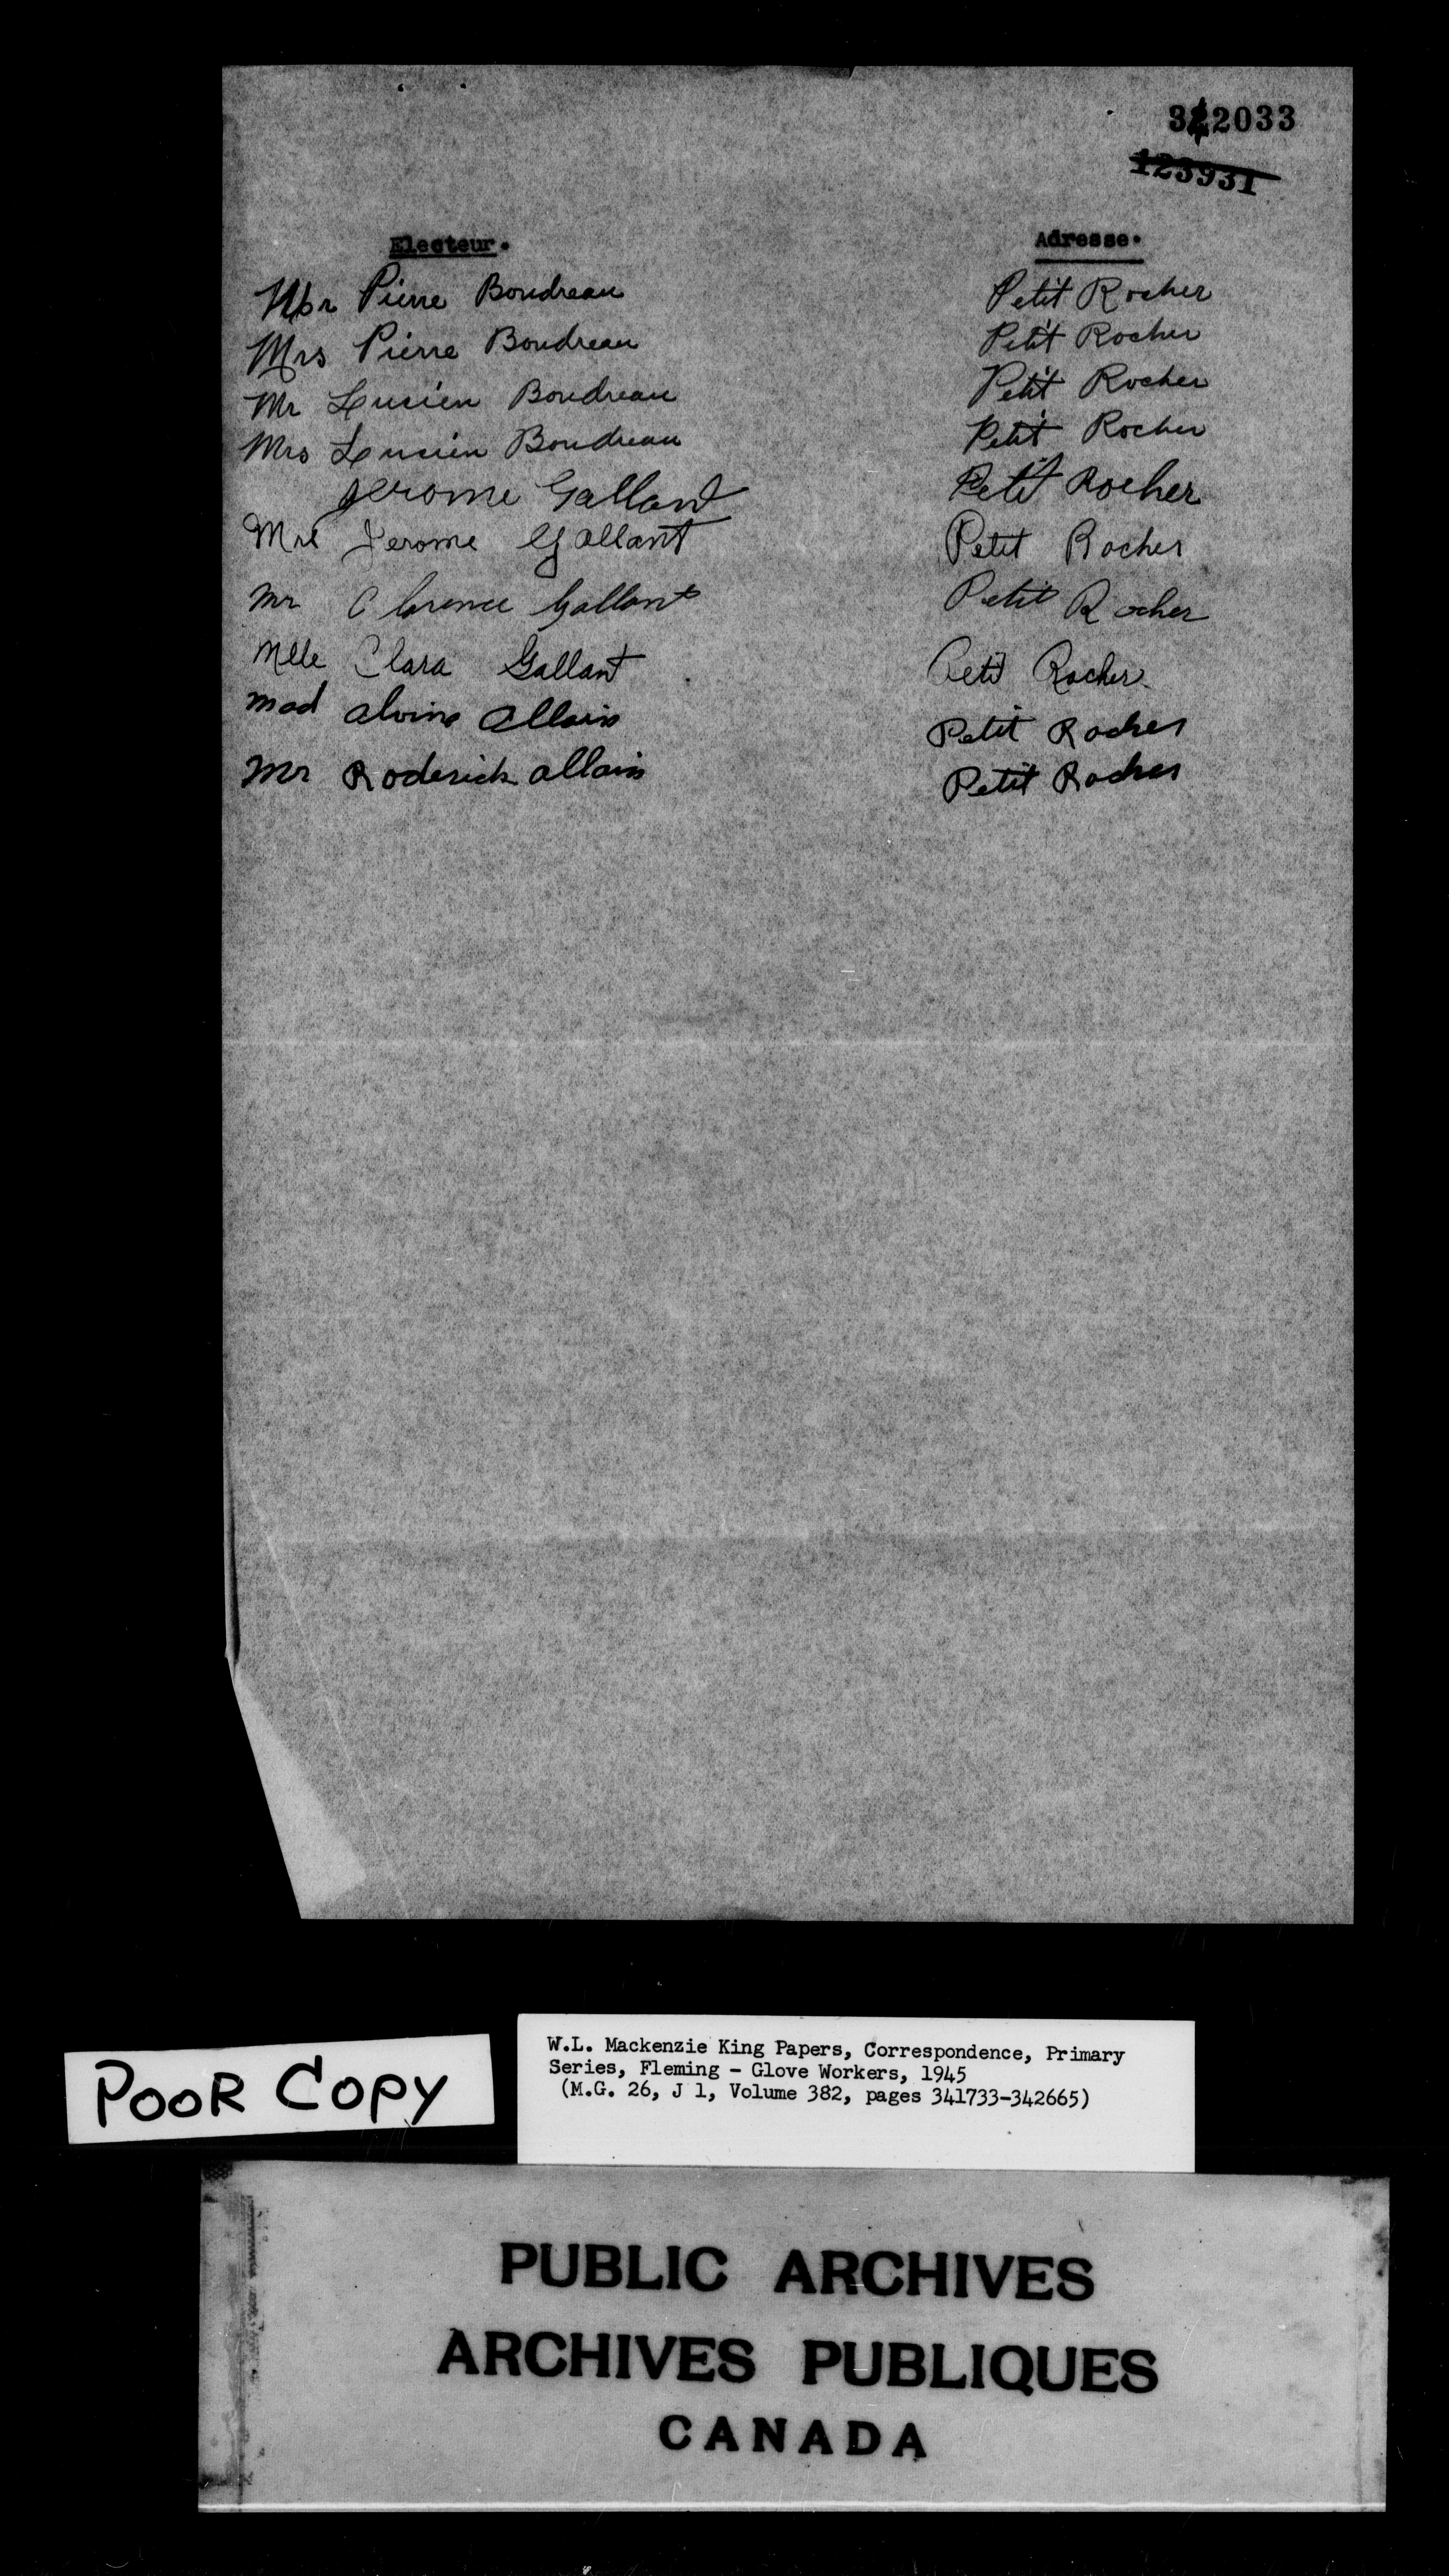 342033
123931
Electeur. Adresse.
Mr Pierre Boudreau Petit Rocher
Mrs Pierre Boudreau Petit Rocher
Mr Lucien Boudreau Petit Rocher
Mrs Lucien Boudreau Petit Rocher
Jerome Gallant Petit Rocher
Mrs Jerome Gallant Petit Rocher
Mr Clarence Gallant Petit Rocher
Mlle Clara Gallant Petit Rocher
Mad Allain Petit Rocher
Mr Roderick Allain Petit Rocher
POOR COPY
W.L. Mackenzie King Papers, Correspondence, Primary
Series, Fleming - Glove Workers, 1945
(M.G. 26, J 1, Volume 382, pages 341733-342665)
PUBLIC ARCHIVES
ARCHIVES PUBLIQUES
CANADA